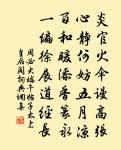 炎官火傘謾高張
心靜何妨五月涼
百和暖添香篆永
一編徐展道經長
周必大端午帖子太上
皇后閣詞典網集